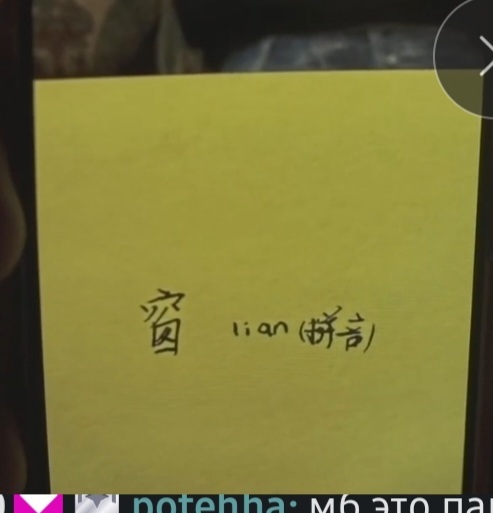 窗 lian (拼音)
potehha: мб это па